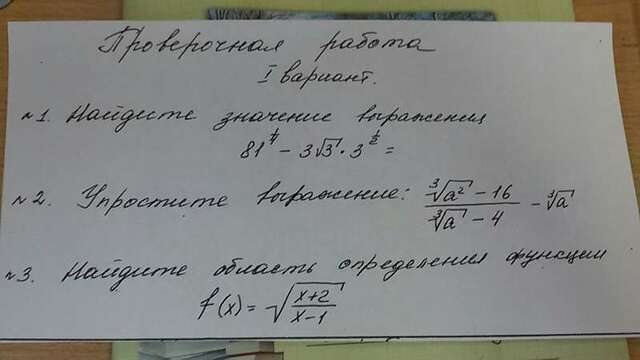 Проверочная работа
I вариант.
№1. Найдите значение выражения
81^{1/4} - 3√3 · 3^{1/2} =
№2. Упростите выражение: (∛a² - 16)/(∛a - 4) - ∛a
№3. Найдите область определения функции
f(x) = √((x+2)/(x-1))